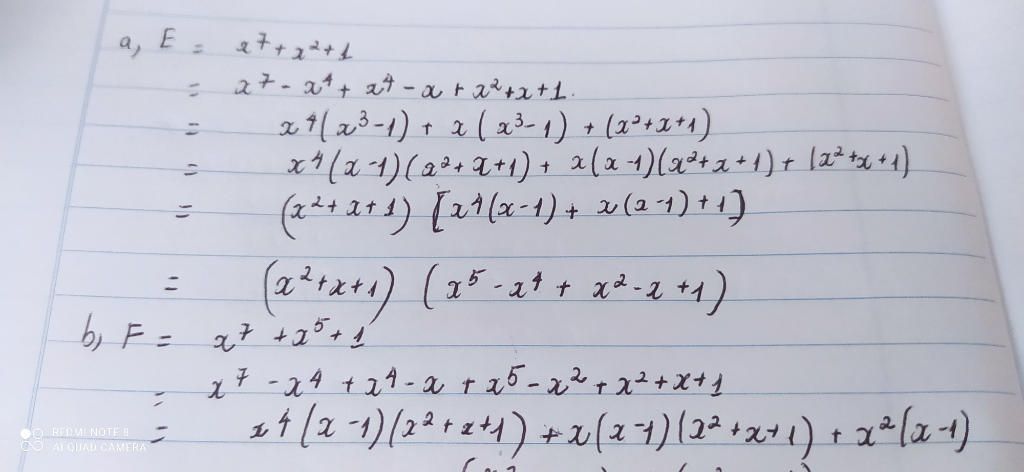 a, E = x⁷ + x² + 1
= x⁷ - x⁴ + x⁴ - x + x² + x + 1.
= x⁴(x³-1) + x(x³-1) + (x²+x+1)
= x⁴(x-1)(x²+x+1) + x(x-1)(x²+x+1) + (x²+x+1)
= (x²+x+1) [x⁴(x-1) + x(x-1)+1]
= (x²+x+1) (x⁵ - x⁴ + x² - x + 1)
b, F = x⁷ + x⁵ + 1
= x⁷ - x⁴ + x⁴ - x + x⁵ - x² + x² + x + 1
= x⁴(x-1)(x²+x+1) + x(x-1)(x²+x+1) + x²(x-1)
REDMI NOTE 8
AI QUAD CAMERA